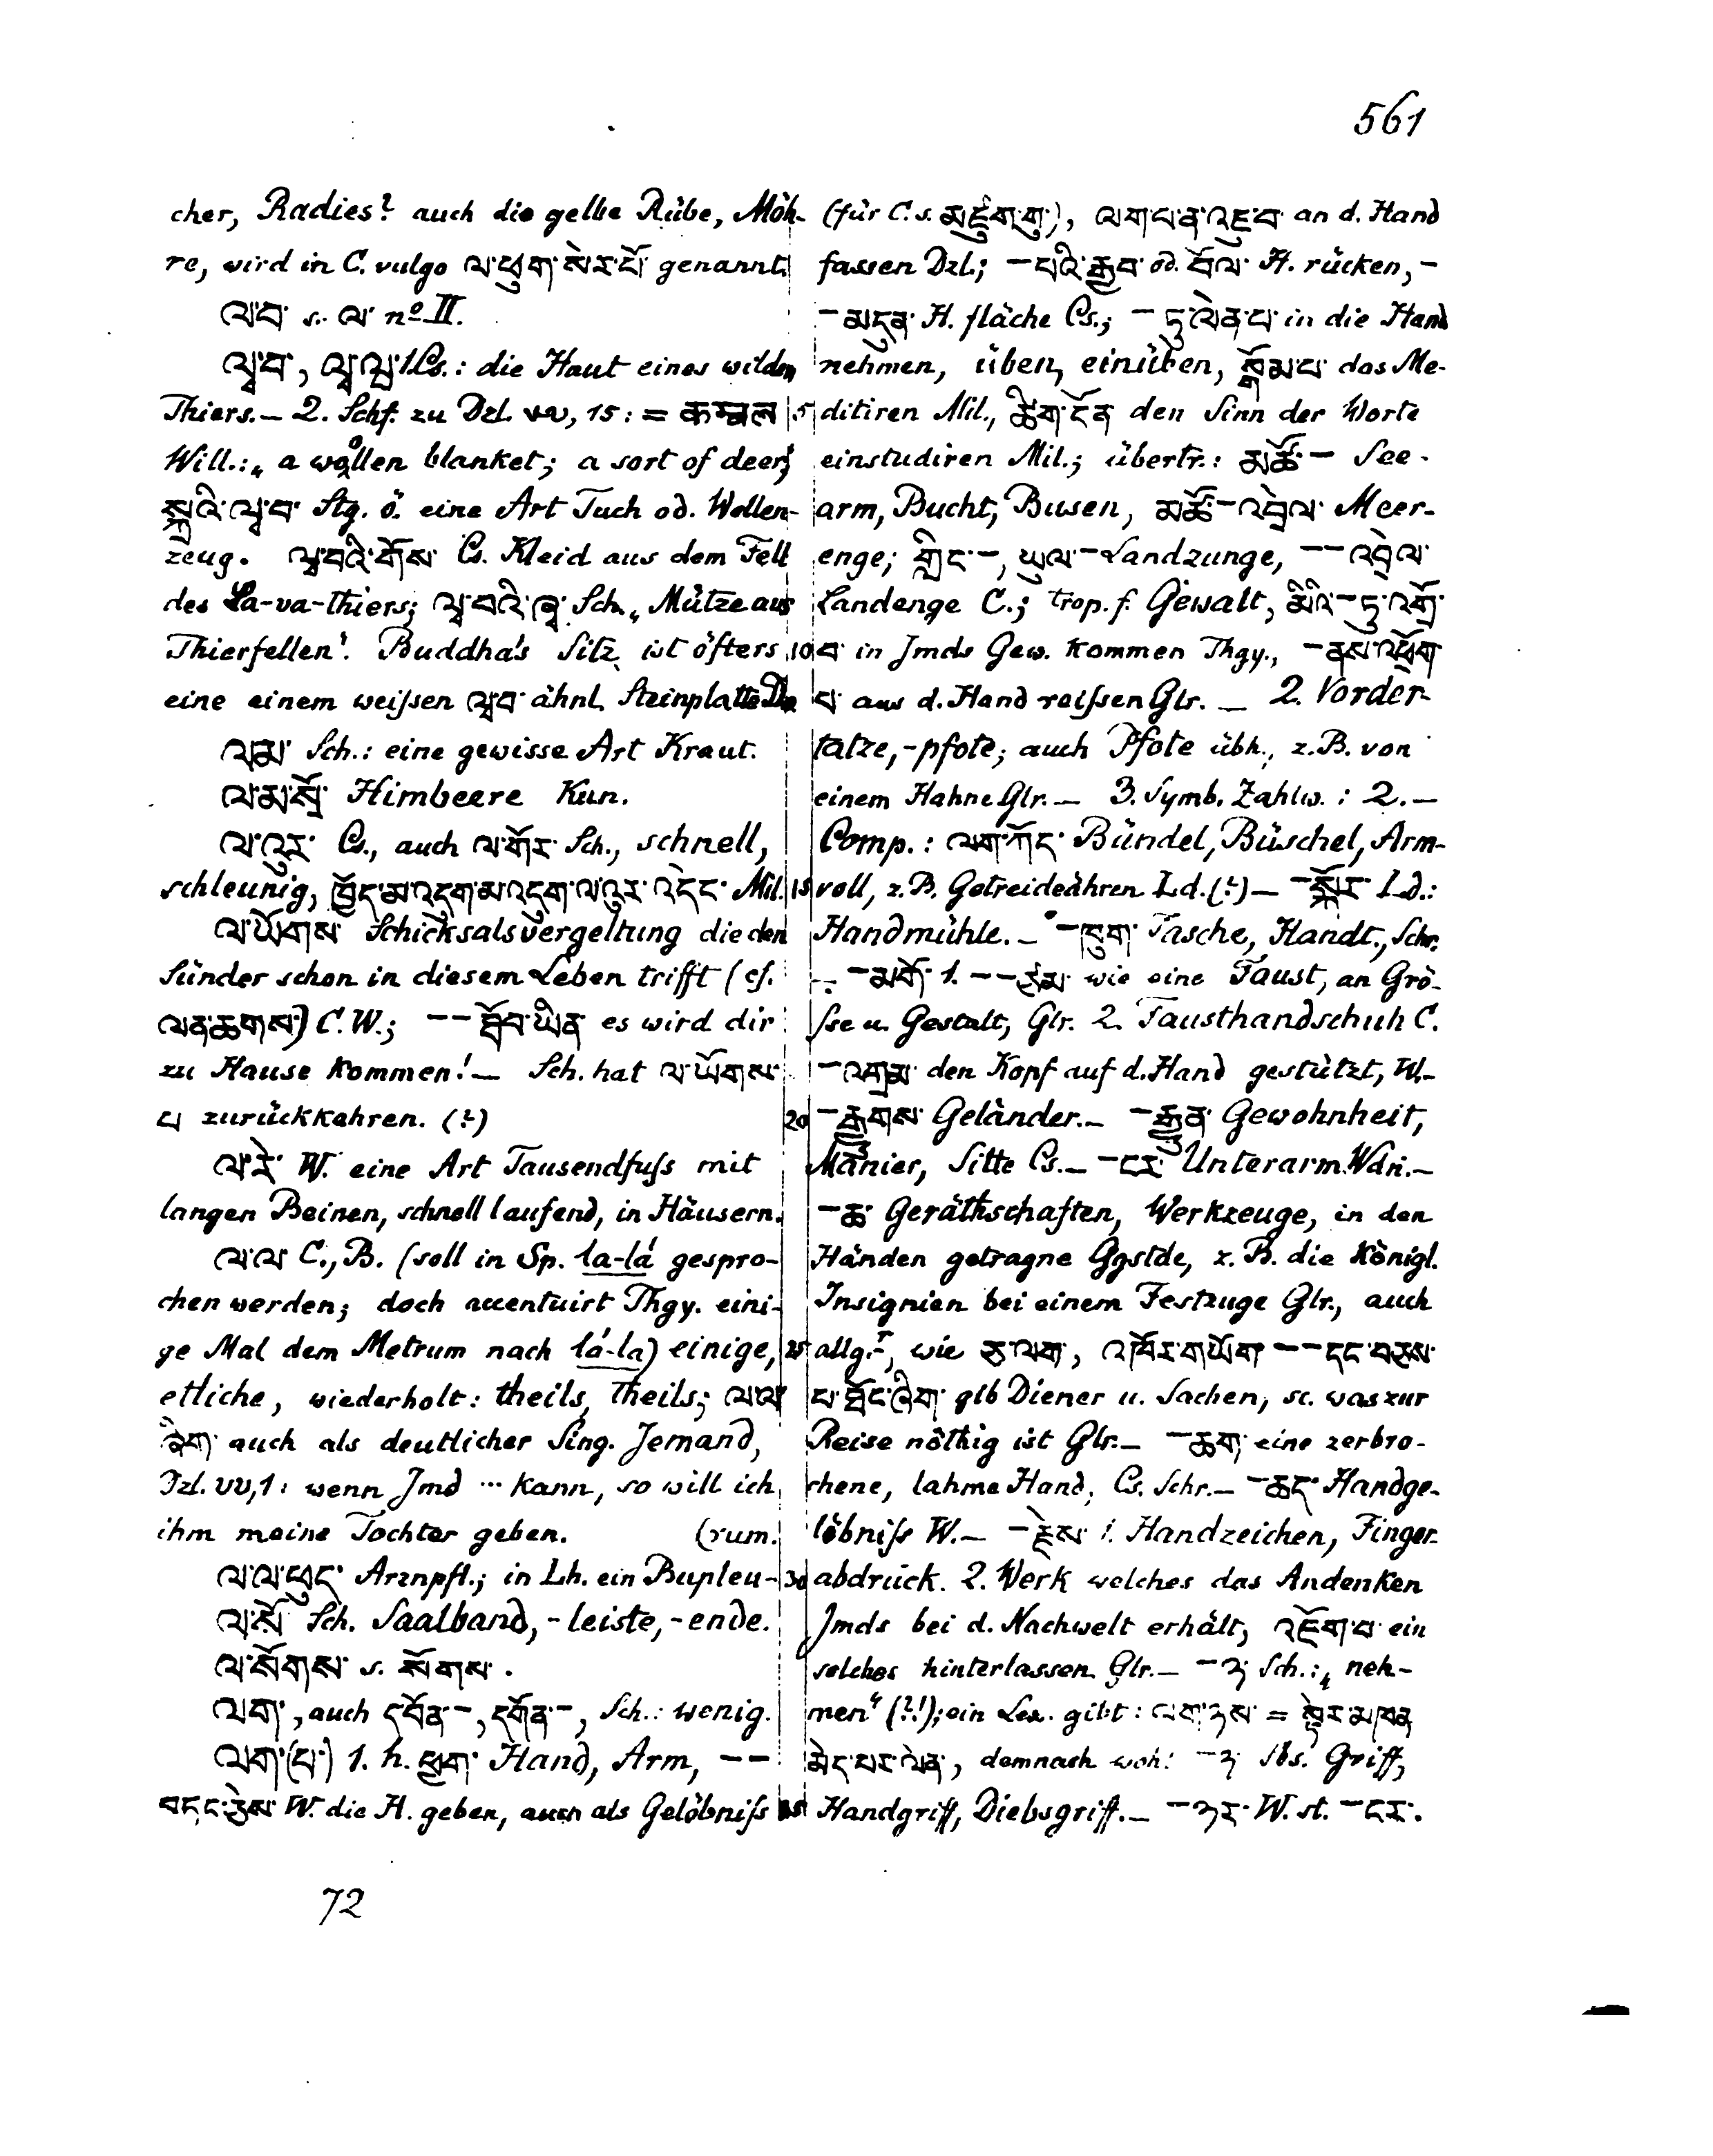 561
cher, Radies? auch die gelbe Rübe, Möh-
re, wird in C. vulgo ལ་ཕུག་སེར་པོ་ genannt.
ལ་བ་ s. ལ་ nº II.
ལྭ་བ་, ལྭ་ལྭ་ 1. Cs.: die Haut eines wilden
Thiers. — 2. Schf. zu Dzl. 15: = कम्बल
Will.: „a wollen blanket; a sort of deer;
སྐྲའི་ལྭ་བ་ Stg. ö. eine Art Tuch od. Wollen-
zeug. ལྭ་བའི་གོས་ Cs. Kleid aus dem Fell
des La-va-thiers; ལྭ་བའི་ཞྭ་ Sch. „Mütze aus
Thierfellen". Buddha's Sitz ist öfters
eine einem weissen ལྭ་བ་ ähnl. Steinplatte
ལ་མ་ Sch.: eine gewisse Art Kraut.
ལ་མ་སྲོ་ Himbeere Kun.
ལ་འུར་ Cs., auch ལ་གོར་ Sch., schnell,
schleunig, ཁྱོད་མ་འདུག་མ་འདུག་ལ་འུར་འདེང་ Mil.
ལ་ཡོགས་ Schicksalsvergeltung die den
Sünder schon in diesem Leben trifft (cf.
ལན་ཆགས་) C. W.; —— ཐོབ་ཡིན་ es wird dir
zu Hause kommen! — Sch. hat ལ་ཡོགས་
པ zurückkehren. (?)
ལ་རེ་ W. eine Art Tausendfuss mit
langen Beinen, schnell laufend, in Häusern.
ལ་ལ་ C., B. (soll in Sp. la-lá gespro-
chen werden; doch accentuirt Thgy. eini-
ge Mal dem Metrum nach lá-la) einige,
etliche, wiederholt: theils, theils; ལ་ལ་
ཞིག་ auch als deutlicher Sing. Jemand,
Dzl. 1: wenn Jmd ··· kann, so will ich
ihm meine Tochter geben. (rum.
ལ་ལ་ཕུད་ Arznpfl.; in Lh. ein Bupleu-
ལ་སོ་ Sch. Saalband, -leiste, -ende.
ལ་སོགས་ s. སོགས་.
ལག་, auch དབོན་—, དགོན་—, Sch.: wenig.
ལག་(པ་) 1. h. ཕྱག་ Hand, Arm, ——
གཏང་ཅེས་ W. die H. geben, auch als Gelöbniss
(für C. s. མཛུག་གུ་), ལག་པ་ན་འཇུ་བ་ an d. Hand
fassen Dzl.; —པའི་རྒྱབ་ od. བོལ་ H. rücken, —
—མདུན་ H. fläche Cs.; —ཏུ་ལེན་པ་ in die Hand
nehmen, üben, einüben, སྒོམ་པ་ das Me-
5 ditiren Mil., ཚིག་དོན་ den Sinn der Worte
einstudiren Mil.; übertr.: མཚོ་— See-
arm, Bucht, Busen, མཚོ་—འབྲེལ་ Meer-
enge; གླིང་—, ཡུལ་— Landzunge, ——འབྲེལ་
Landenge C.; trop. f. Gewalt, མིའི་—ཏུ་འགྲོ་
10 བ་ in Jmds Gew. kommen Thgy., —ནས་འཕྲོག་
པ་ aus d. Hand reissen Glr. — 2. Vorder-
tatze, -pfote; auch Pfote übh., z. B. von
einem Hahne Glr. — 3. Symb. Zahlw.: 2. —
Comp.: ལག་ཀོད་ Bündel, Büschel, Arm-
15 voll, z. B. Getreideähren Ld. (?) — —སྐོར་ Ld.:
Handmühle. — —ཁུག་ Tasche, Handt., Schr.
— —མགོ་ 1. ——ཙམ་ wie eine Faust, an Grö-
sse u. Gestalt, Glr. 2. Fausthandschuh C.
—འགྲམ་ den Kopf auf d. Hand gestützt, W. —
20 —རྒྱུགས་ Geländer. — —རྒྱུན་ Gewohnheit,
Manier, Sitte Cs. — —ངར་ Unterarm. Wdn. —
—ཆ་ Geräthschaften, Werkzeuge, in den
Händen getragne Ggstde, z. B. die königl.
Insignien bei einem Festzuge Glr., auch
25 allg.r, wie ཅ་ལག་, འཁོར་གཡོག་——དང་བཅས་
པ་ཐོང་ཞིག་ gib Diener u. Sachen, sc. was zur
Reise nöthig ist Glr. — —ཆག་ eine zerbro-
chene, lahme Hand, Cs. Schr. — —ཆད་ Handge-
löbniss W. — —རྗེས་ 1. Handzeichen, Finger-
30 abdrück. 2. Werk welches das Andenken
Jmds bei d. Nachwelt erhält, འཇོག་པ་ ein
solches hinterlassen Glr. — —ཉ་ Sch.: „neh-
men" (?!); ein Lex. gibt: ལག་ཉས་ = སྟེར་མཁན་
མེད་པར་ལེན་, demnach woh: —ཉ་ Sbs. Griff,
35 Handgriff, Diebsgriff. — —ཉར་ W. st. —ངར་.
72